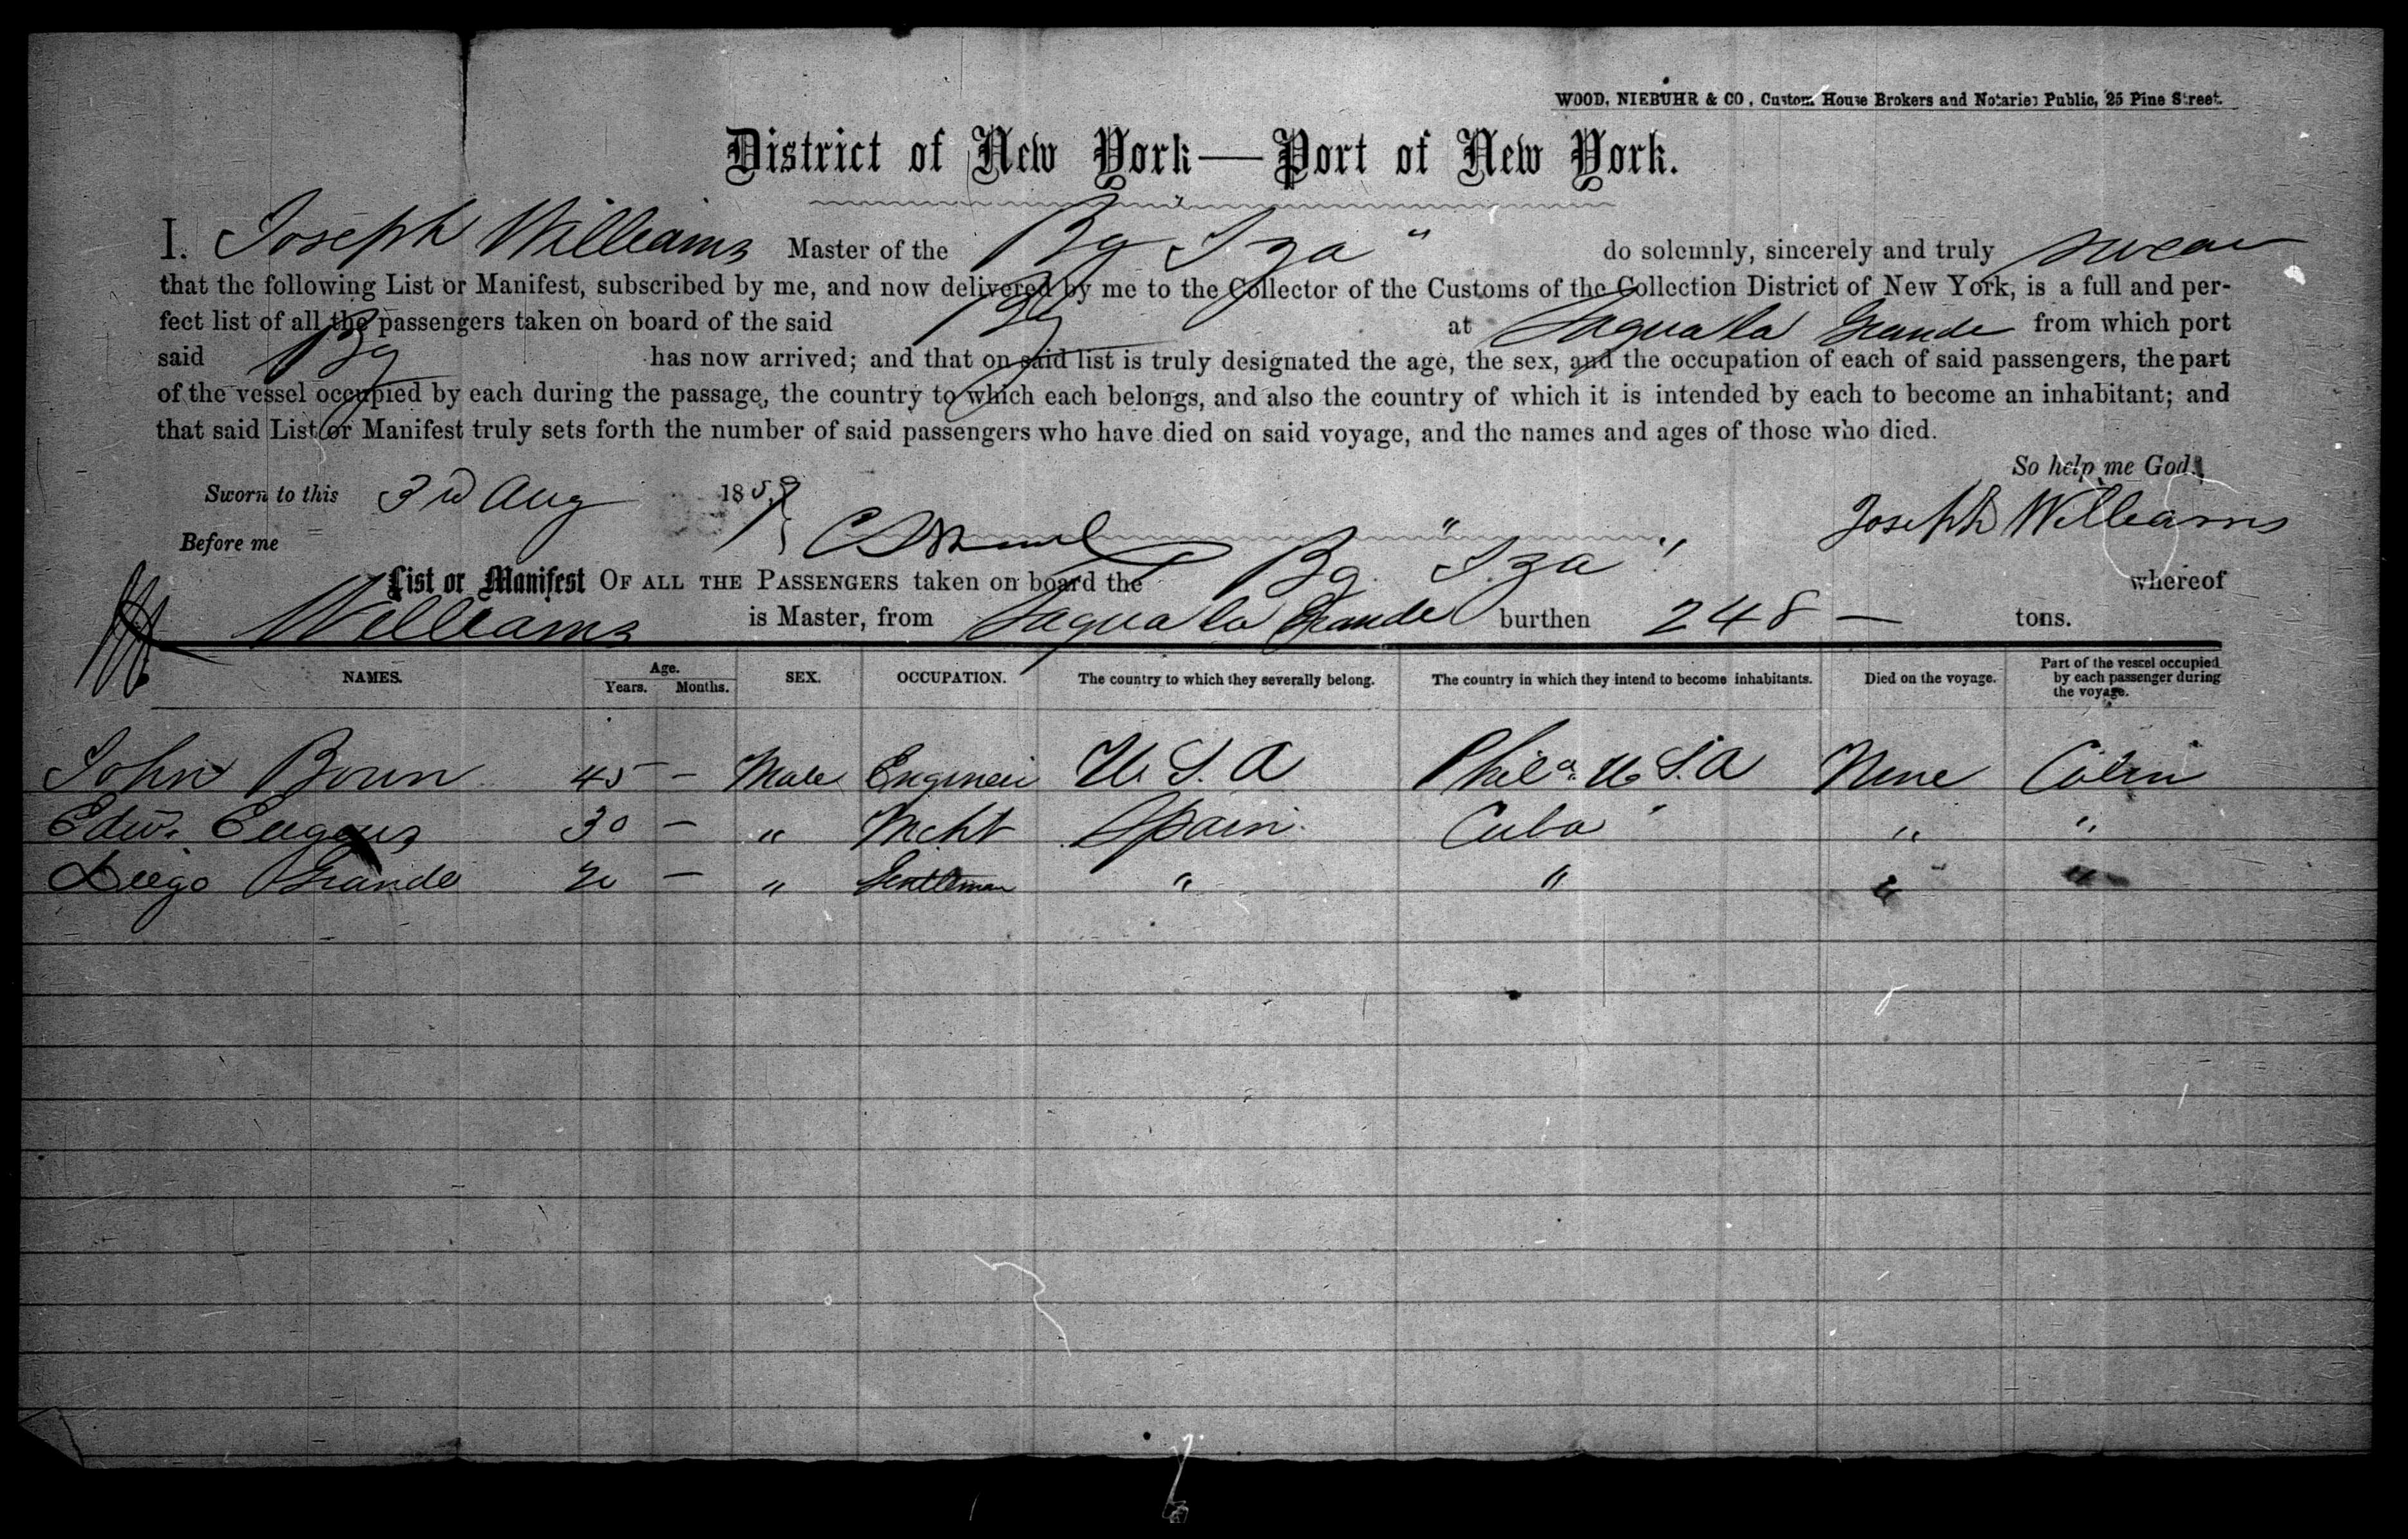 WOOD, NIEBUHR & CO, Custom House Brokers and Notaries Public, 25 Pine Street.
District of New York—Port of New York.
I. Joseph Williams Master of the Bg "Iza" do solemnly, sincerely and truly swear
that the following List or Manifest, subscribed by me, and now delivered by me to the Collector of the Customs of the Collection District of New York, is a full and per-
fect list of all the passengers taken on board of the said Bg at Sagua la Grande from which port
said Bg has now arrived; and that on said list is truly designated the age, the sex, and the occupation of each of said passengers, the part
of the vessel occupied by each during the passage, the country to which each belongs, and also the country of which it is intended by each to become an inhabitant; and
that said List or Manifest truly sets forth the number of said passengers who have died on said voyage, and the names and ages of those who died.
So help me God.
Sworn to this 3rd Aug 185 Joseph Williams
Before me
List or Manifest OF ALL THE PASSENGERS taken on board the Bg. "Iza" whereof
Williams is Master, from Sagua la Grande burthen 248 — tons.
NAMES. Age. Years. Months. SEX. OCCUPATION. The country to which they severally belong. The country in which they intend to become inhabitants. Died on the voyage. Part of the vessel occupied by each passenger during the voyage.
John 45 — Male Engineer U. S. A Phila. U S. A None Cabin
Edw. 30 — " Mcht Spain Cuba " "
Diego Grande — " Gentleman " " " "